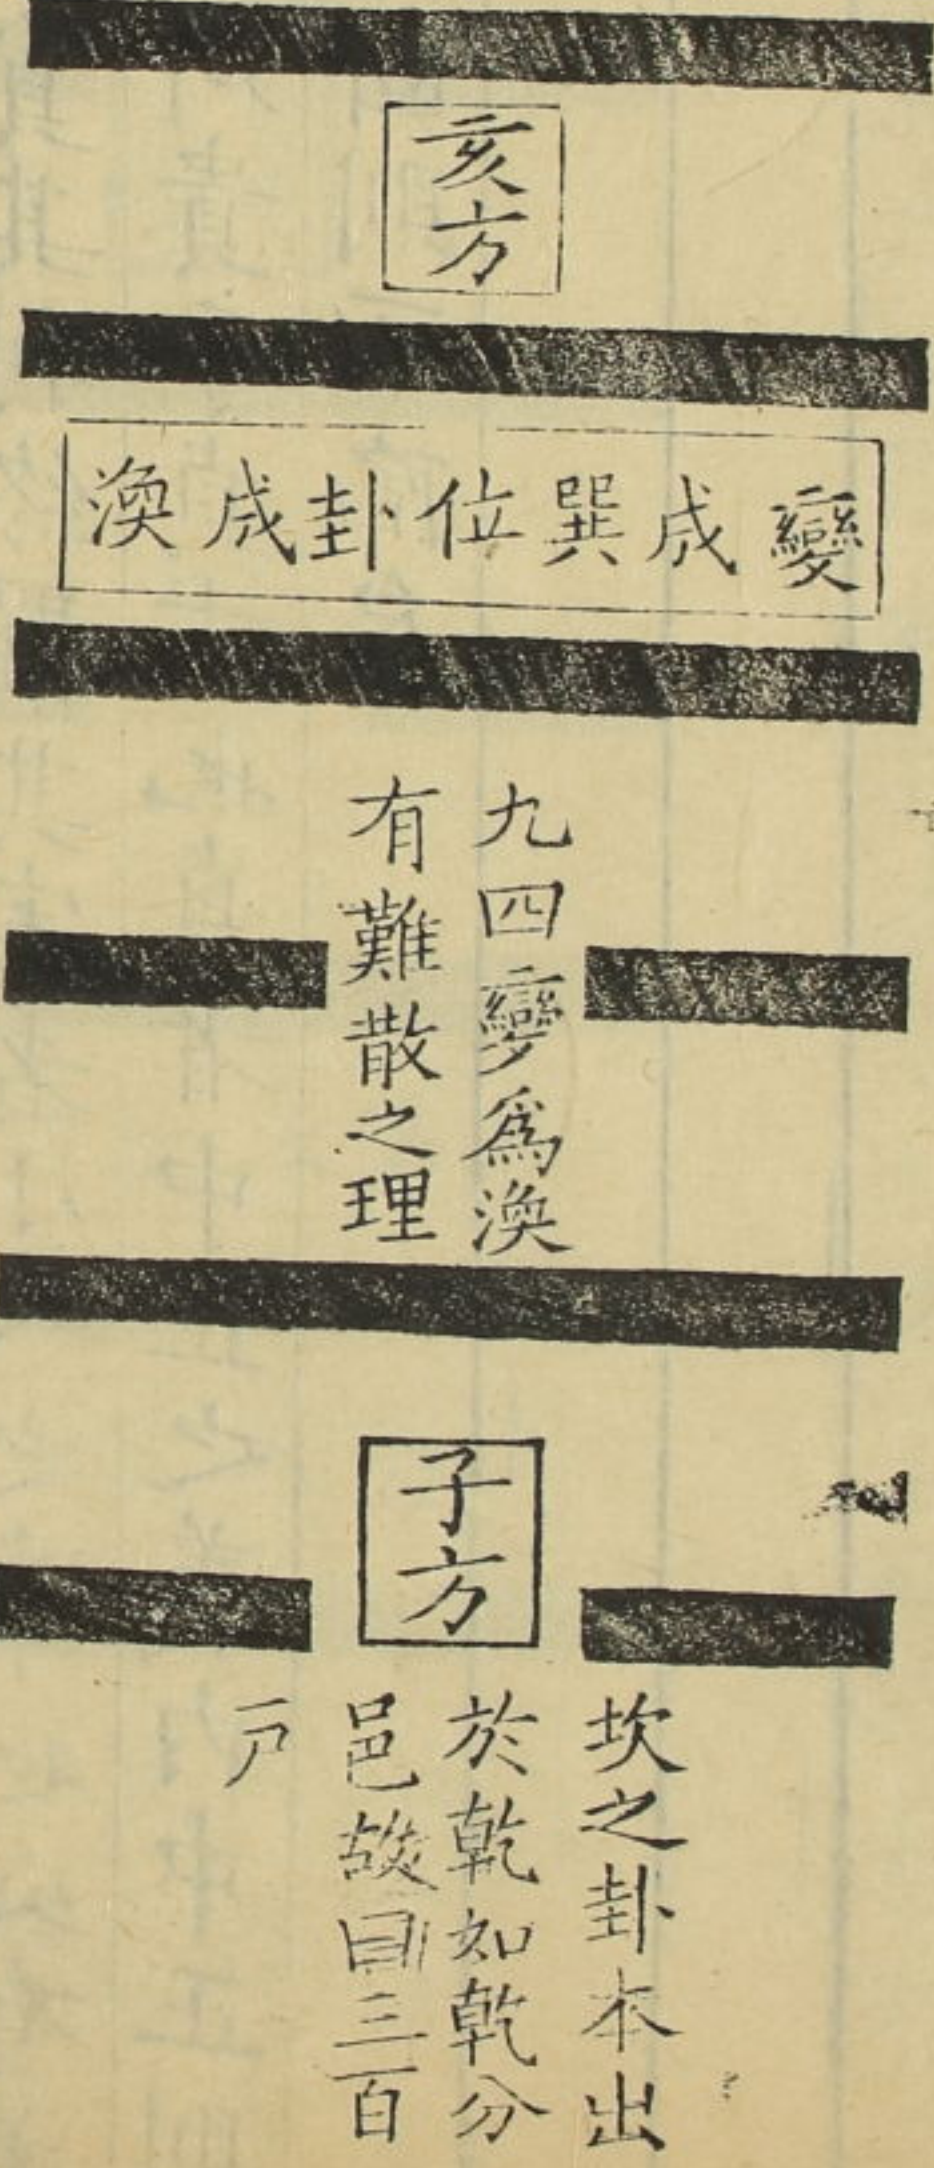 亥方
變成巽位卦成渙
九四變爲渙
有難散之理
子方
坎之卦本出
於乾如乾分
邑故三百
戸